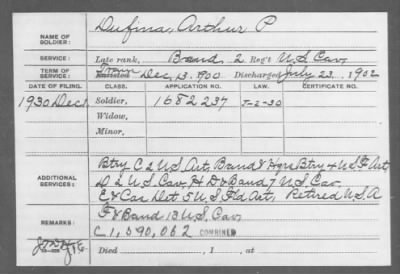 NAME OF SOLDIER: Dufina, Arthur P
SERVICE: Late rank, Band 2 Reg't U.S. Cav.
TERM OF SERVICE: Enlisted Dec. 13, 1900 Discharged July 23, 1902
DATE OF FILING. CLASS. APPLICATION NO. LAW. CERTIFICATE NO.
1930 Dec 1 Soldier, 1682237 J-2-30
Widow,
Minor,
ADDITIONAL SERVICES: Btry C 2 U.S. Art, Band & Hqrs Btry 4 U.S. F Art,
D 2 U.S. Cav, H D & Band 7 U.S. Cav.
E & Cas Det 5 U.S. Fld Art, Retired U.S.A
REMARKS: F & Band 13 U.S. Cav.
C 1,690,062 COMBINED
Died , 1 , at